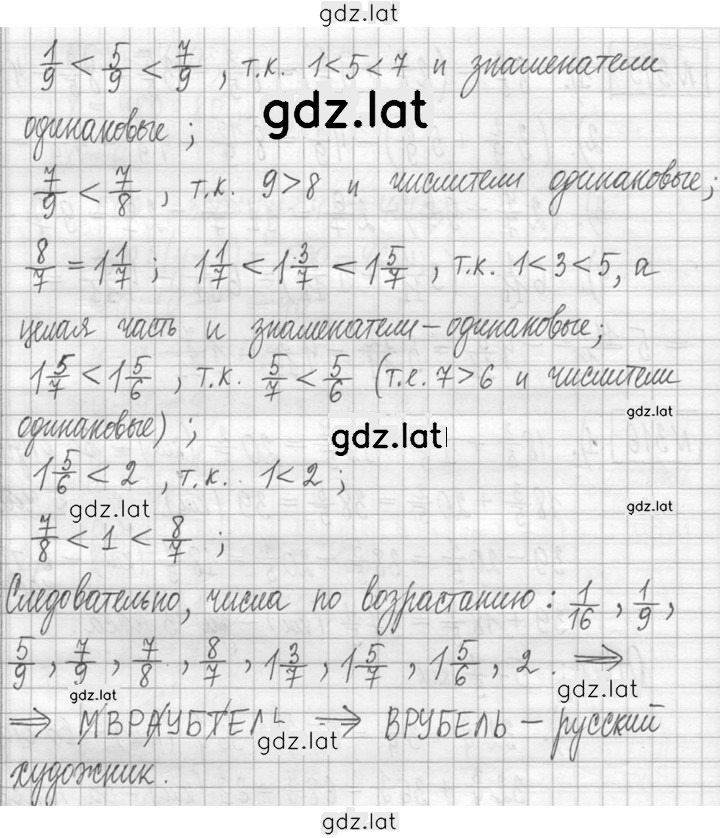 gdz.lat
1/9 < 5/9 < 7/9 , т.к. 1<5<7 и знаменатели
gdz.lat
одинаковые ;
7/9 < 7/8 , т.к. 9>8 и числители одинаковые;
8/7 = 1 1/7 ; 1 1/7 < 1 3/7 < 1 5/7 , т.к. 1<3<5, а
целая часть и знаменатели – одинаковые;
1 5/7 < 1 5/6 , т.к. 5/7 < 5/6 (т.е. 7>6 и числители
gdz.lat
одинаковые) ;
gdz.lat
1 5/6 < 2 , т.к. 1<2 ;
gdz.lat
gdz.lat
7/8 < 1 < 8/7 ;
Следовательно, числа по возрастанию: 1/16 , 1/9 ,
5/9 , 7/9 , 7/8 , 8/7 , 1 3/7 , 1 5/7 , 1 5/6 , 2 . ⟹
gdz.lat
gdz.lat
⟹ МВРАУБТЕЛЬ ⟹ ВРУБЕЛЬ – русский
gdz.lat
художник.
gdz.lat